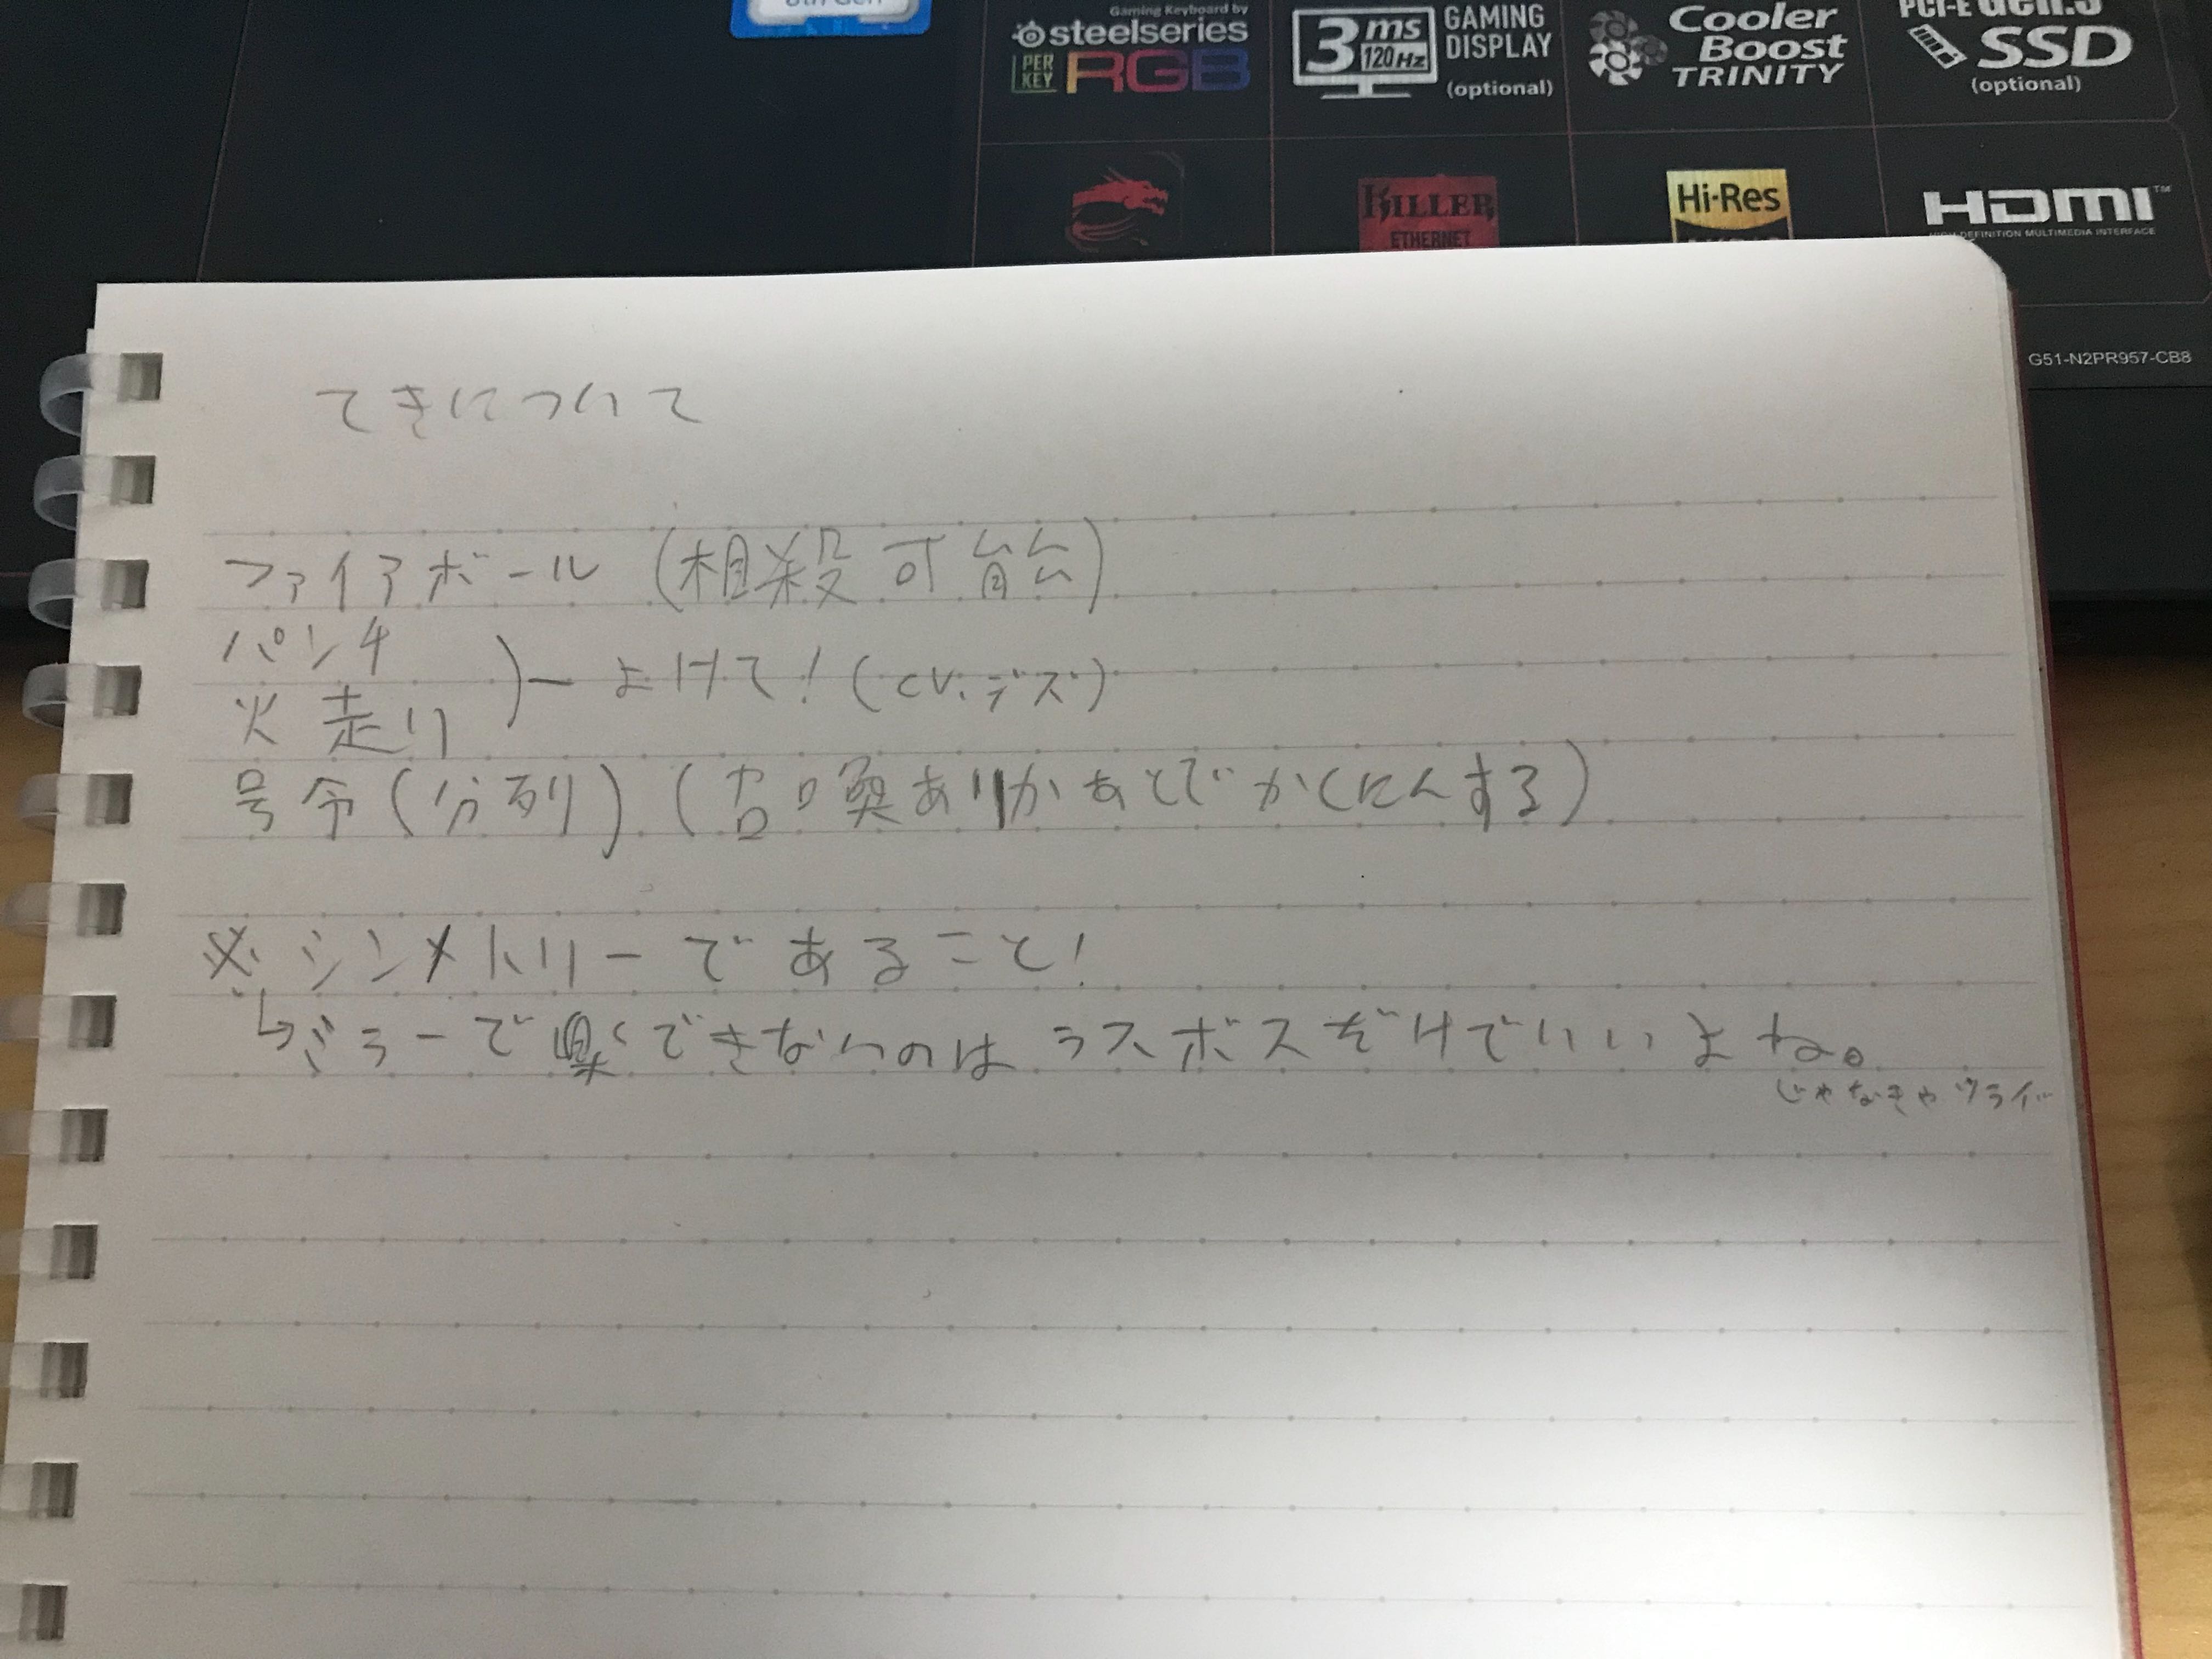 8th Gen
Gaming Keyboard by
steelseries
PER KEY RGB
3 ms 120Hz GAMING DISPLAY (optional)
Cooler Boost TRINITY
PCI-E Gen.3 SSD (optional)
KILLER ETHERNET
Hi-Res
HDMI™
HIGH-DEFINITION MULTIMEDIA INTERFACE
G51-N2PR957-CB8
てきについて
ファイアボール (相殺可能)
パンチ
火走り
よけて! (CV.デズ)
号令(分列) (召喚ありかあとでかくにんする)
※シンメトリーであること!
↳ミラーで楽できないのはラスボスだけでいいよね。
じゃなきゃツライ